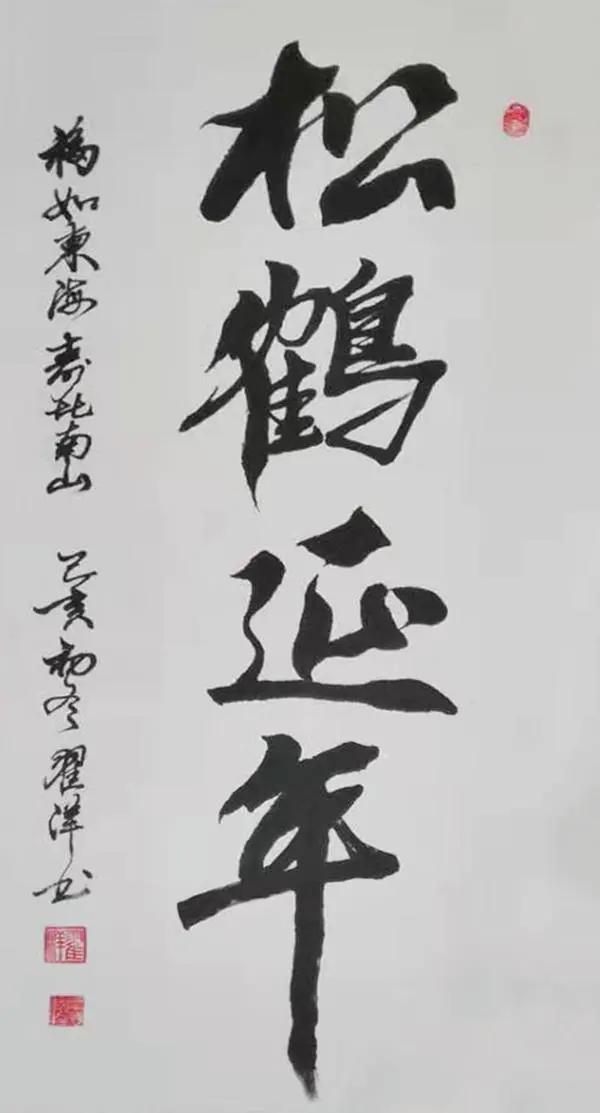 松鶴延年
福如東海 壽比南山 己亥初冬 翟洋书